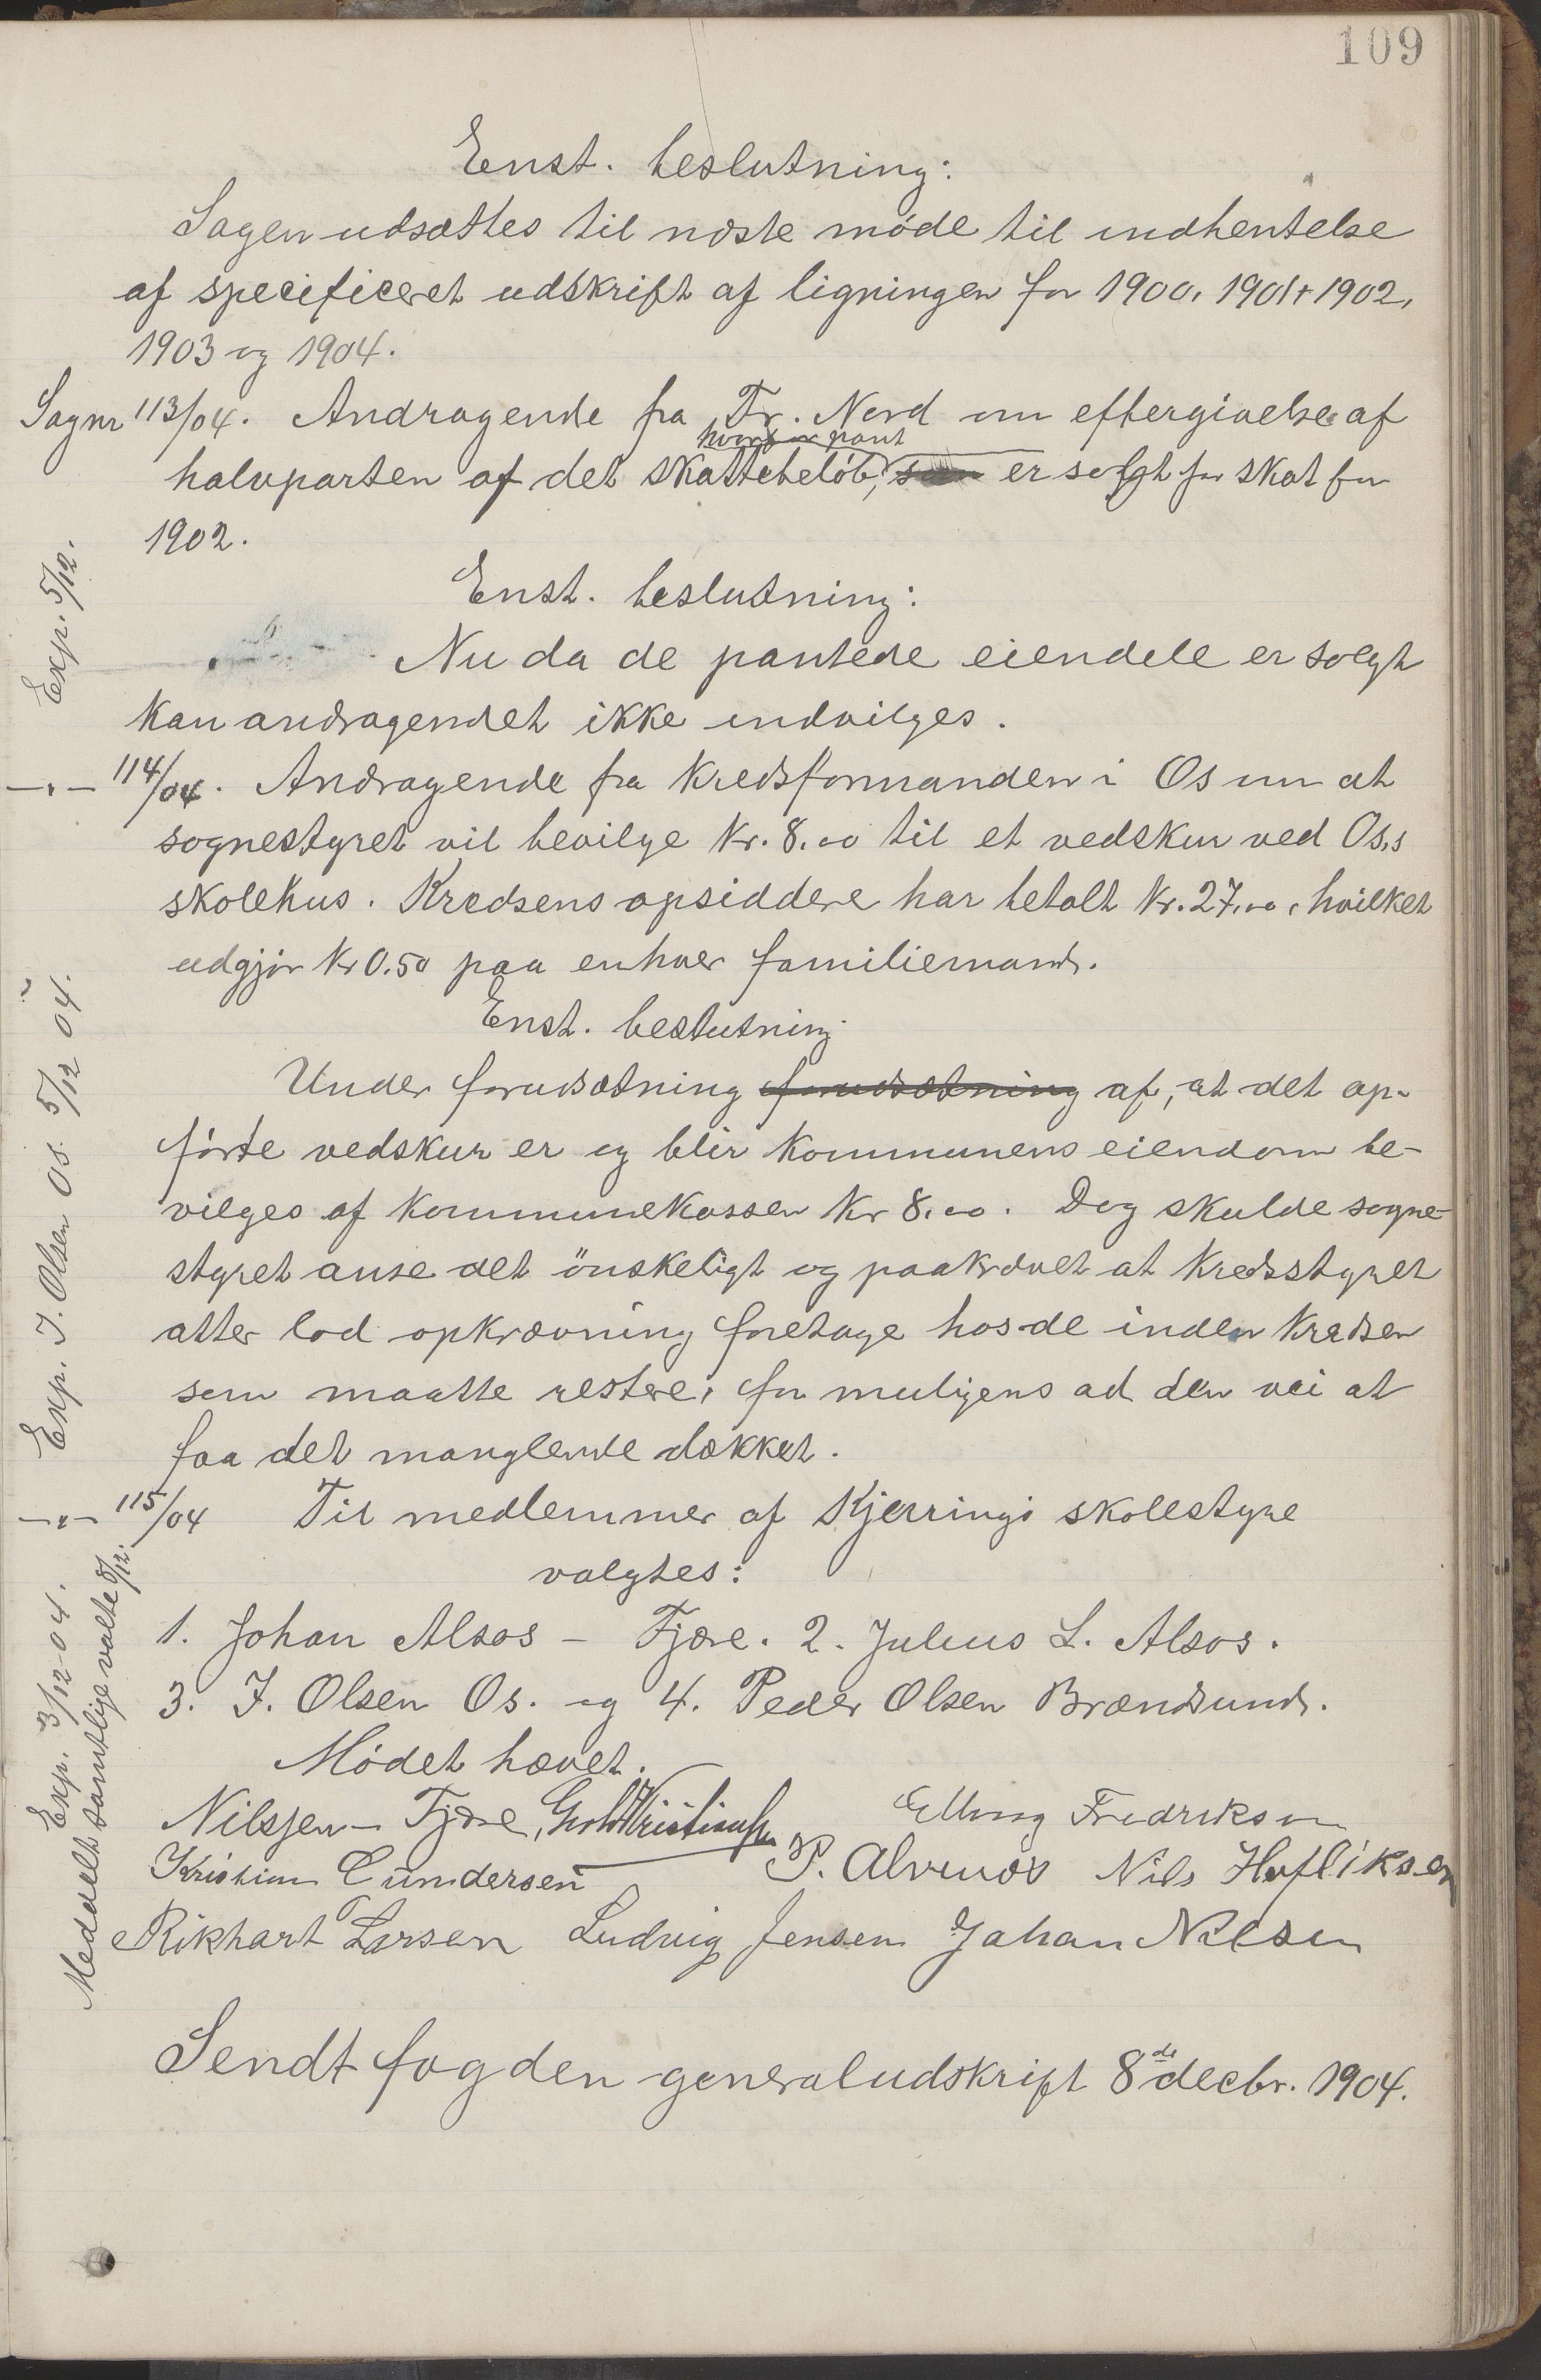 109
Enst. beslutning:
Sagen udsættes til næste möde til indhentelse
af specificeret udskrift af ligningen for 1900, 1901 + 1902,
1903 og 1904.
Sagnr 113/04. Andragende fra Fr. Nord om eftergivelse af
hvorfor pant
halvparten af det skattebelöb, som er solgt for skat for
1902.
Exp. 5/12.
Enst. beslutning:
Nu da de pantede eiendele er solgt
kan andragendet ikke indvilges.
—„— 114/04. Andragende fra kredsformanden i Os om at
sognestyret vil bevilge Kr. 8.00 til et vedskur ved Os,s
skolehus. Kredsens opsiddere har betalt Kr. 27.00, hvilket
udgjör Kr 0.50 paa enhver familiemand.
Exp. J. Olsen Os. 5/12 04.
Enst. beslutning
Under forudsætning forudsætning af, at det op-
förte vedskur er og blir kommunens eiendom be-
vilges af kommunekassen Kr 8.00. Dog skulde sogne-
styret anse det önskeligt og paakrævet at kredsstyret
atter lod opkrævning foretage hos de inden kredsen
som maatte restere, for muligens ad den vei at
faa det manglende dækket.
—„— 115/04 Til medlemmer af Kjerringö skolestyre
valgtes:
Exp. 3/12 04.
Meddelt samtlige valte 8/12.
1. Johan Alsos – Fjære. 2. Julius L. Alsos.
3. J. Olsen Os. og 4. Peder Olsen Brændsund.
Mödet hævet.
Nilssen – Fjære, Kristiansen Elling Fredriksen
Kristian Gundersen P. Alvenös Nils Hofliksen
Rikhart Larsen Ludvig Jensen Johan Nilsen
Sendt fogden generaludskrift 8de decbr. 1904.